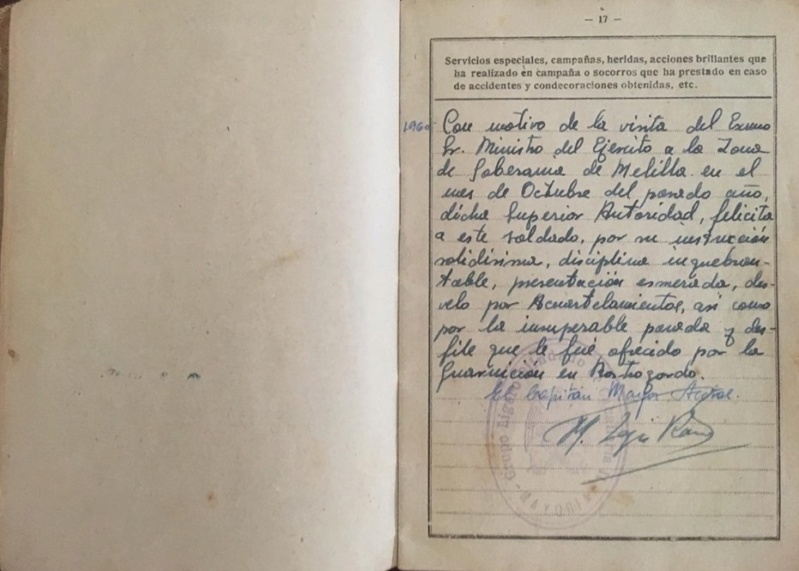 – 17 –
Servicios especiales, campañas, heridas, acciones brillantes que
ha realizado en campaña o socorros que ha prestado en caso
de accidentes y condecoraciones obtenidas, etc.
1960 Con motivo de la visita del Excmo
Sr. Ministro del Ejército a la Zona
de Soberanía de Melilla en el
mes de Octubre del pasado año,
dicha Superior Autoridad, felicita
a este soldado, por su instrucción
solidísima, disciplina inquebran-
table, presentación esmerada, des-
velo por Acuartelamientos, así como
por la insuperable parada y des-
file que le fué ofrecido por la
Guarnición en Rostrogordo.
El Capitán Mayor Acctal.
Grupo Ligero
MAYORIA